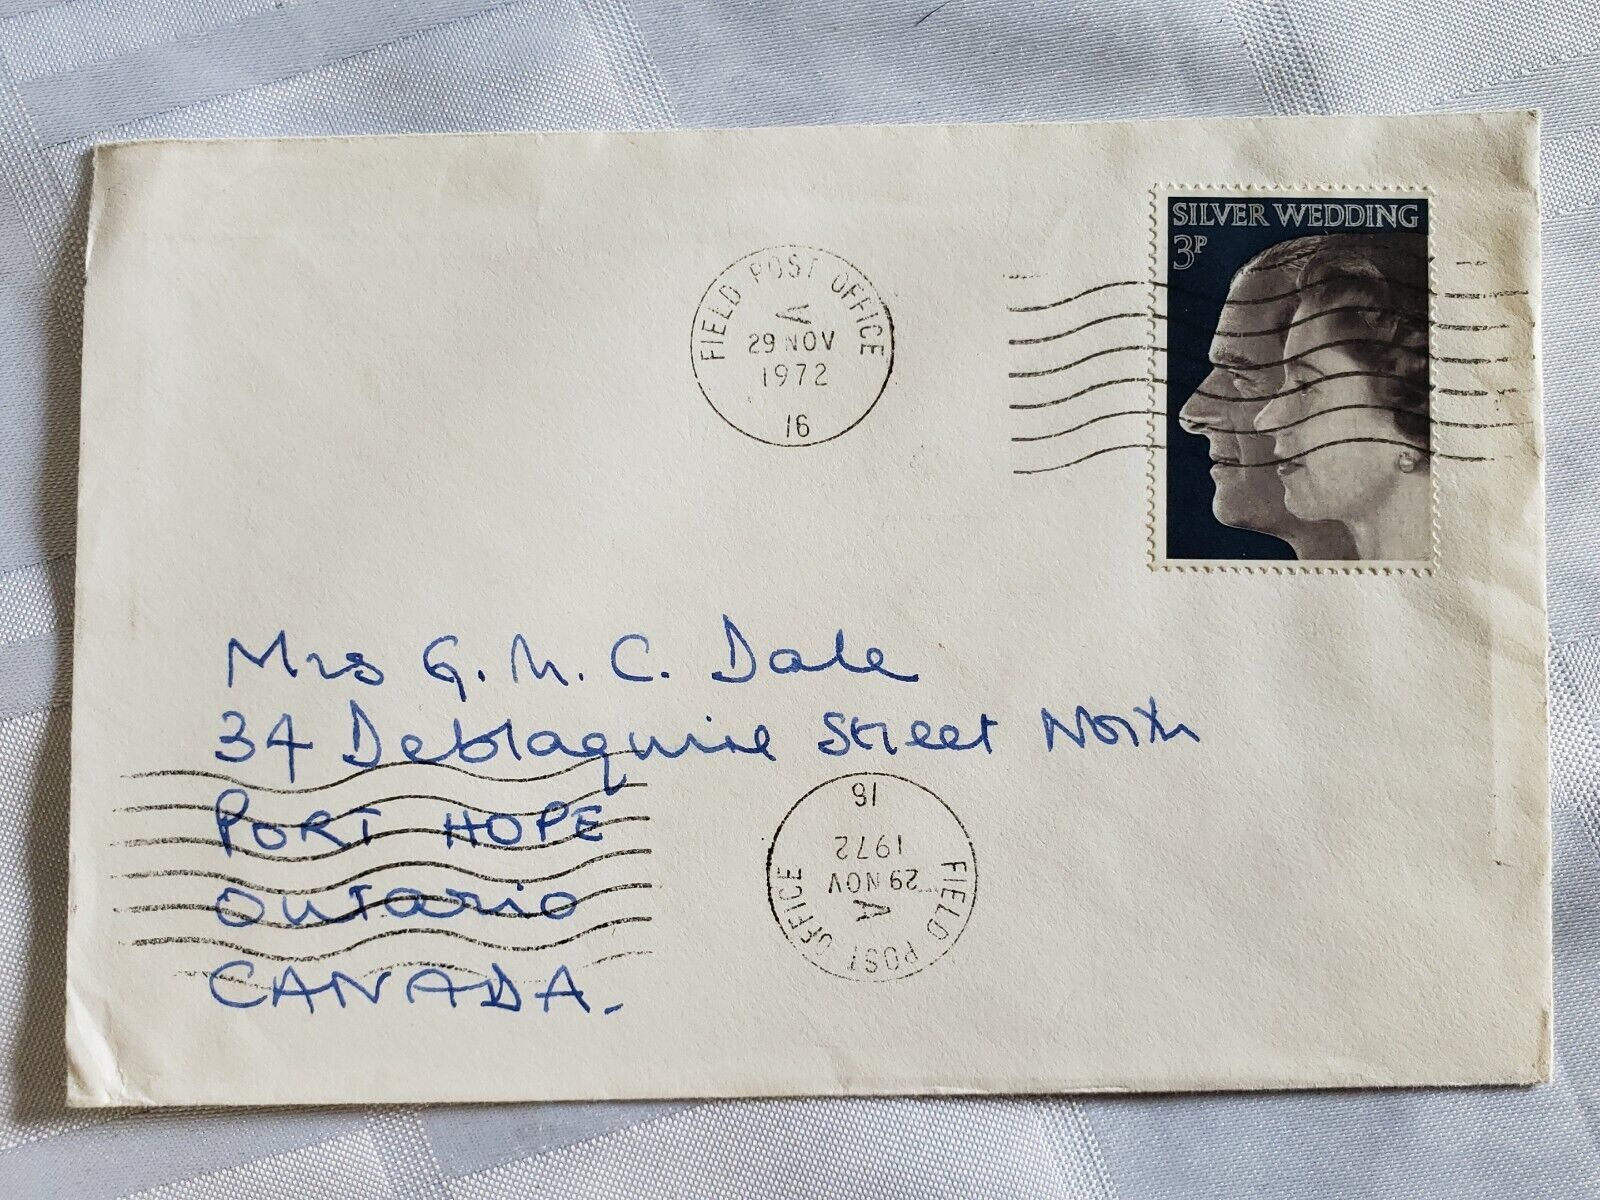 SILVER WEDDING
3P
FIELD POST OFFICE
A
29 NOV
1972
16
Mrs G. M. C. Dale
34 Deblaquire Street North
PORT HOPE
Ontario
CANADA.
16
1972
29 NOV
A
FIELD POST OFFICE